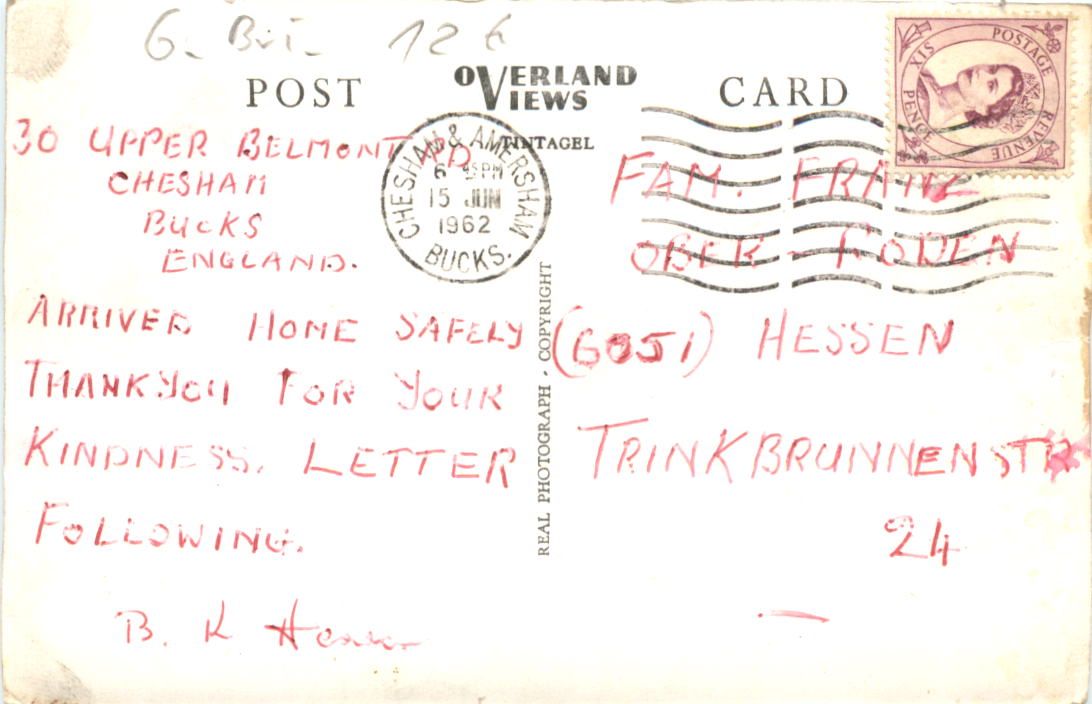 G. Bri. 12 6
OVERLAND
VIEWS
POST CARD
TINTAGEL
POSTAGE
REVENUE
SIX
PENCE
CHESHAM & AMERSHAM
PM
15 JUN
1962
BUCKS.
30 UPPER BELMONT RD
CHESHAM
BUCKS
ENGLAND.
ARRIVED HOME SAFELY
THANK YOU FOR YOUR
KINDNESS. LETTER
FOLLOWING.
B. K
REAL PHOTOGRAPH · COPYRIGHT
FAM. FRANZ
OBER - RODEN
(6051) HESSEN
TRINKBRUNNENSTR
24